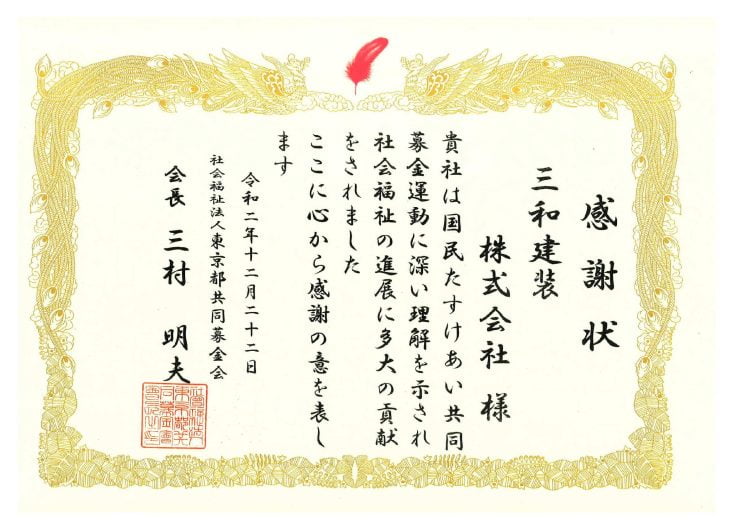 感謝状
三和建装
株式会社 様
貴社は国民たすけあい共同
募金運動に深い理解を示され
社会福祉の進展に多大の貢献
をされました
ここに心から感謝の意を表し
ます
令和二年十二月二十二日
社会福祉法人東京都共同募金会
会長 三村 明夫